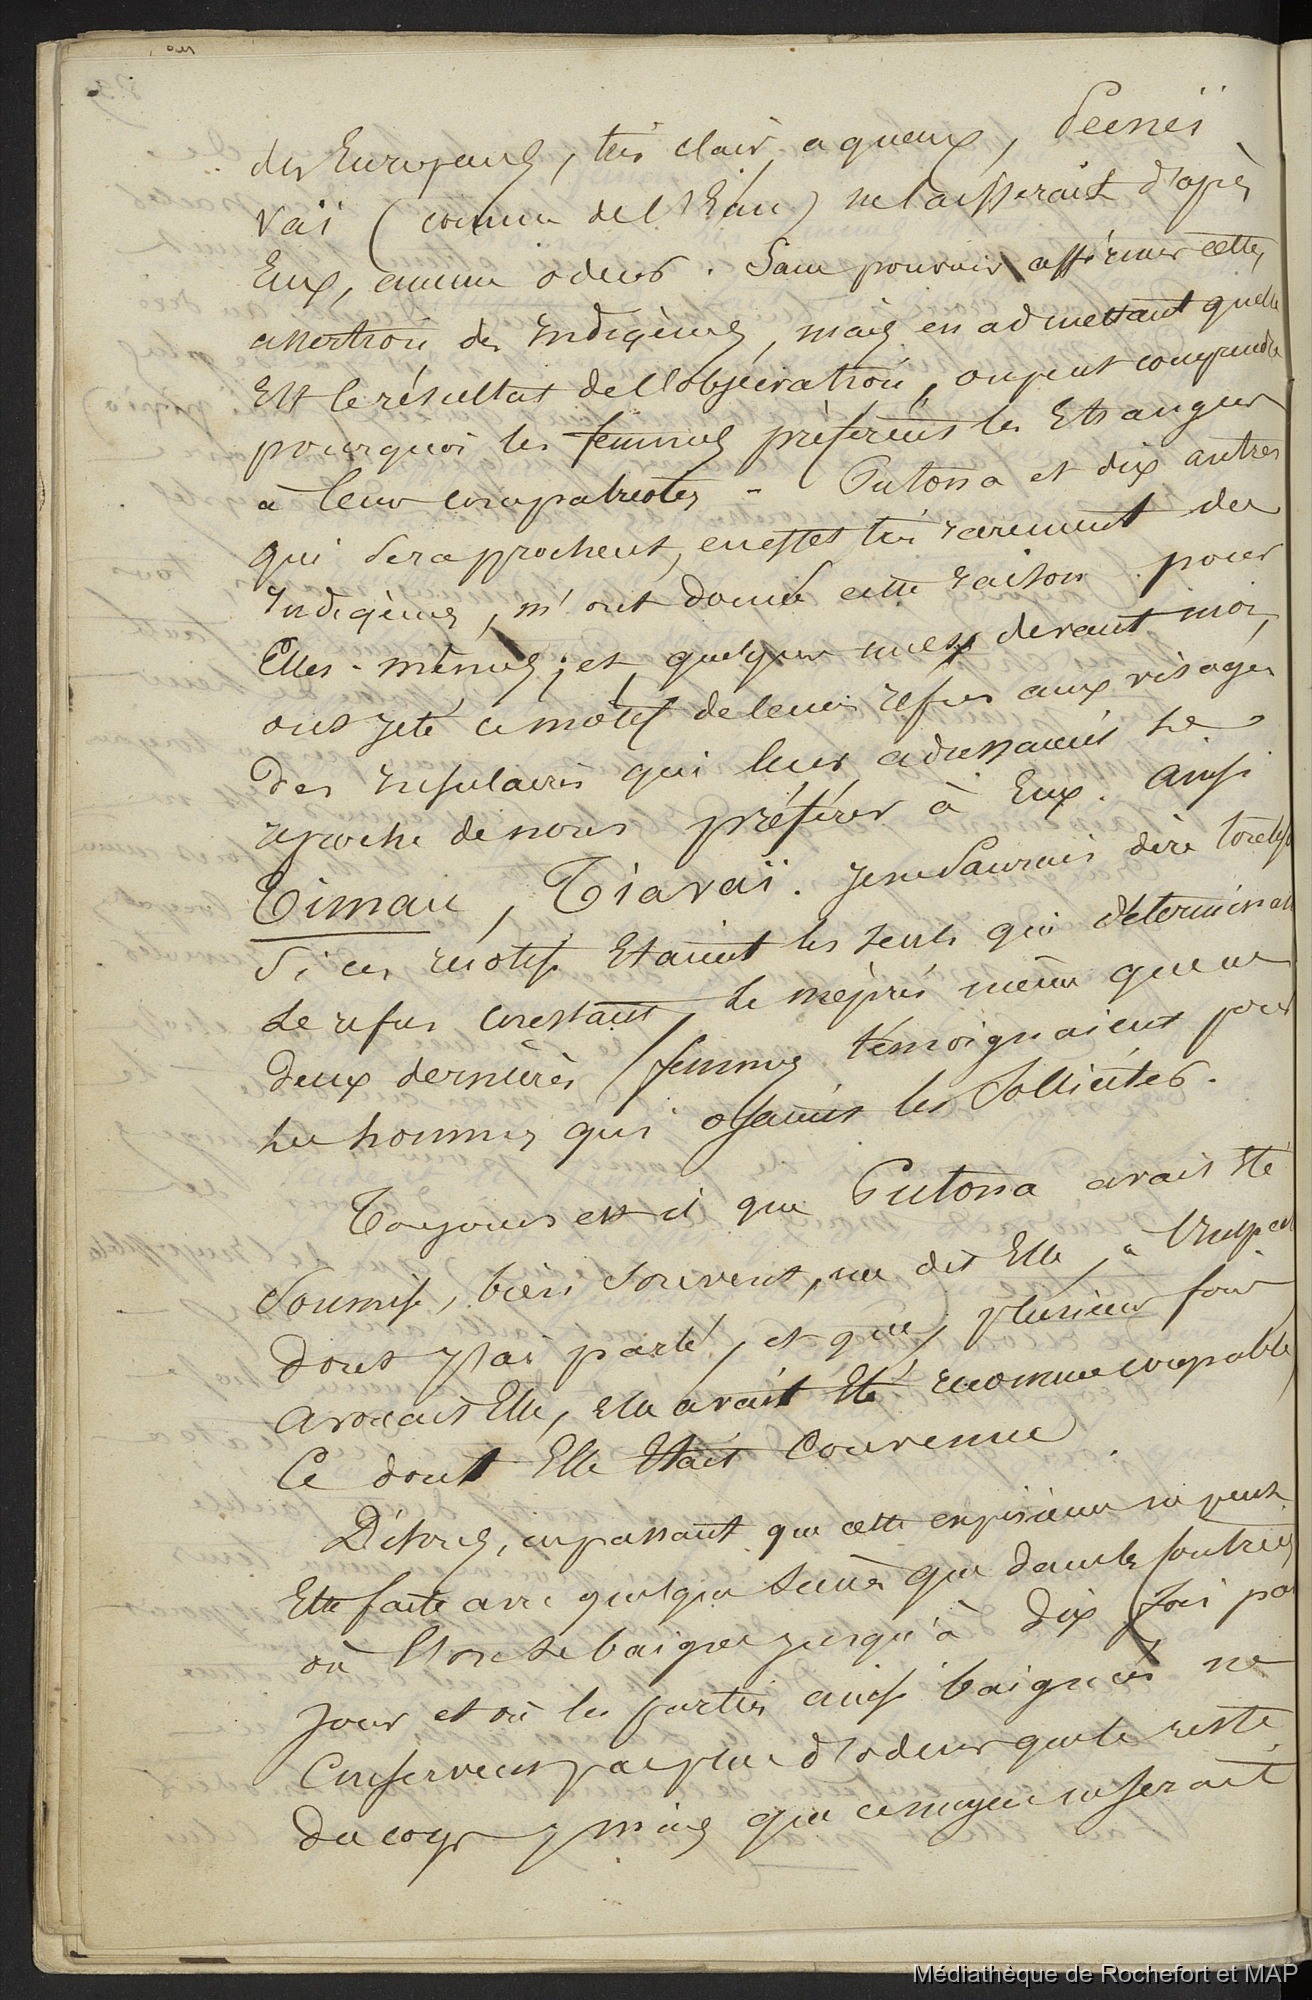 des Européens, très clair, aqueux,
vaï (comme de l'Eau) ne laisserait d'après
Eux, aucune odeur. Sans pouvoir affirmer cette
assertion des Indigènes, mais en admettant quelle
Est le résultat de l'observation, on peut comprendre
pourquoi les femmes préfèrent les Etrangers
a leurs compatriotes - Putona et dix autres
qui se rapprochent, en effet très rarement des
Indigènes, m'ont donné cette raison pour
Elles-mêmes; et quelques unes devant moi,
ont jeté ce motif de leurs refus aux visages
des Insulaires qui leur adressaient le
reproche de nous préférer à Eux. Ainsi
Timau, Tiavaï. je ne saurais dire toutefois
Si ces motifs Etaient les seuls qui déterminaient
le refus constant, le mépris même que ces
deux dernières femmes témoignaient pour
les hommes qui osaient les Solliciter.
Toujours est il que Putona avait été
Soumise, bien souvent, me dit Elle, à
dont j'ai parlé, et que, plusieurs fois
avouait Elle, elle avait Eté reconnue coupable
Ce dont Elle Etait Convenue.
Disons, en passant que cette expérience ne peut
Etre faite avec quelque succès que dans les contrées
où l'on se baigne jusqu'à dix fois par
Jour et où les parties ainsi baignées ne
Conservent pas plus d'odeur que le reste
du corps, mais que ce moyen ne serait
Médiathèque de Rochefort et MAP